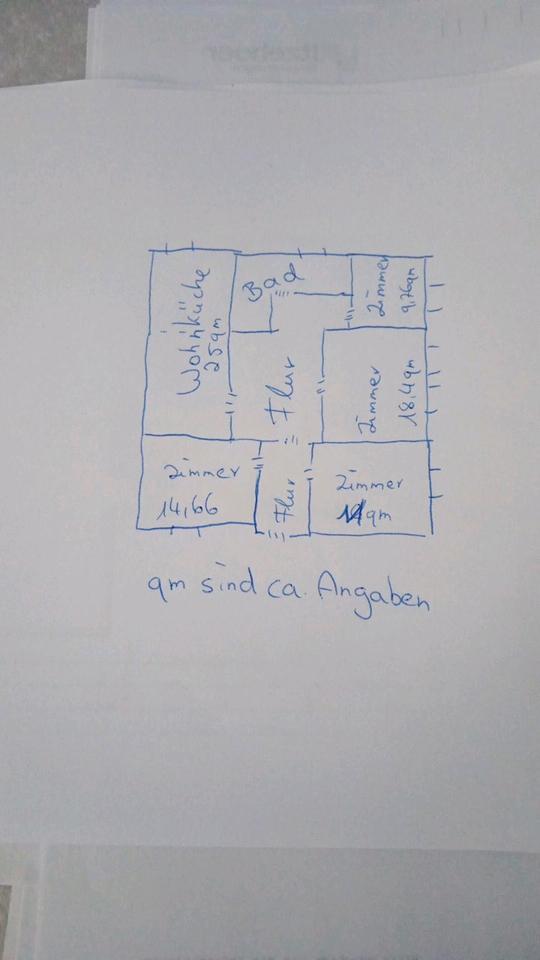 Bad
Wohnküche
25qm
Zimmer
9,76qm
Flur
Zimmer
18,4qm
Zimmer
14,66
Flur
Zimmer
qm
qm sind ca. Angaben